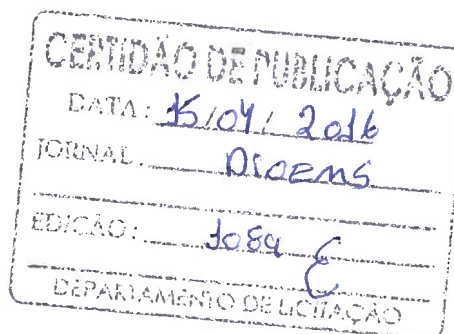 CERTIDÃO DE PUBLICAÇÃO
DATA: 15/04/2016
JORNAL: DIOEMS
EDIÇÃO: 1089
DEPARTAMENTO DE LICITAÇÃO